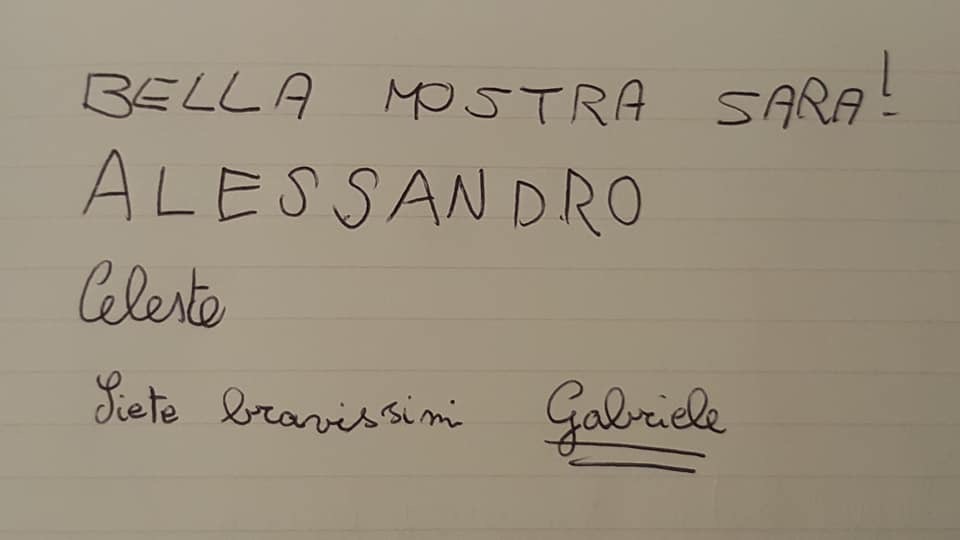 BELLA MOSTRA SARA!
ALESSANDRO
Celeste
Siete bravissimi Gabriele